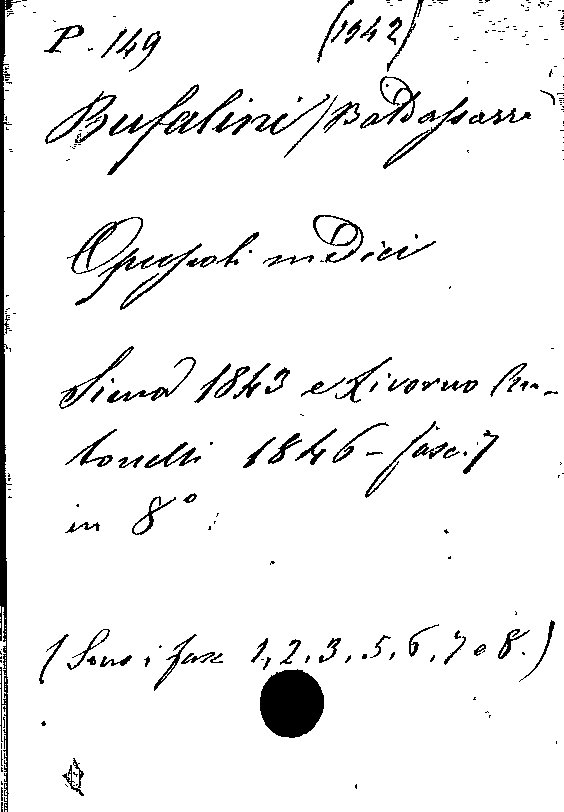 P. 149 (1942)
Bufalini / Baldassarre
Opuscoli medici
Siena 1843 e Livorno An-
tonelli 1846 - fasc. 7
in 8°
(Sono i fasc 1, 2, 3, 5, 6, 7 e 8.)